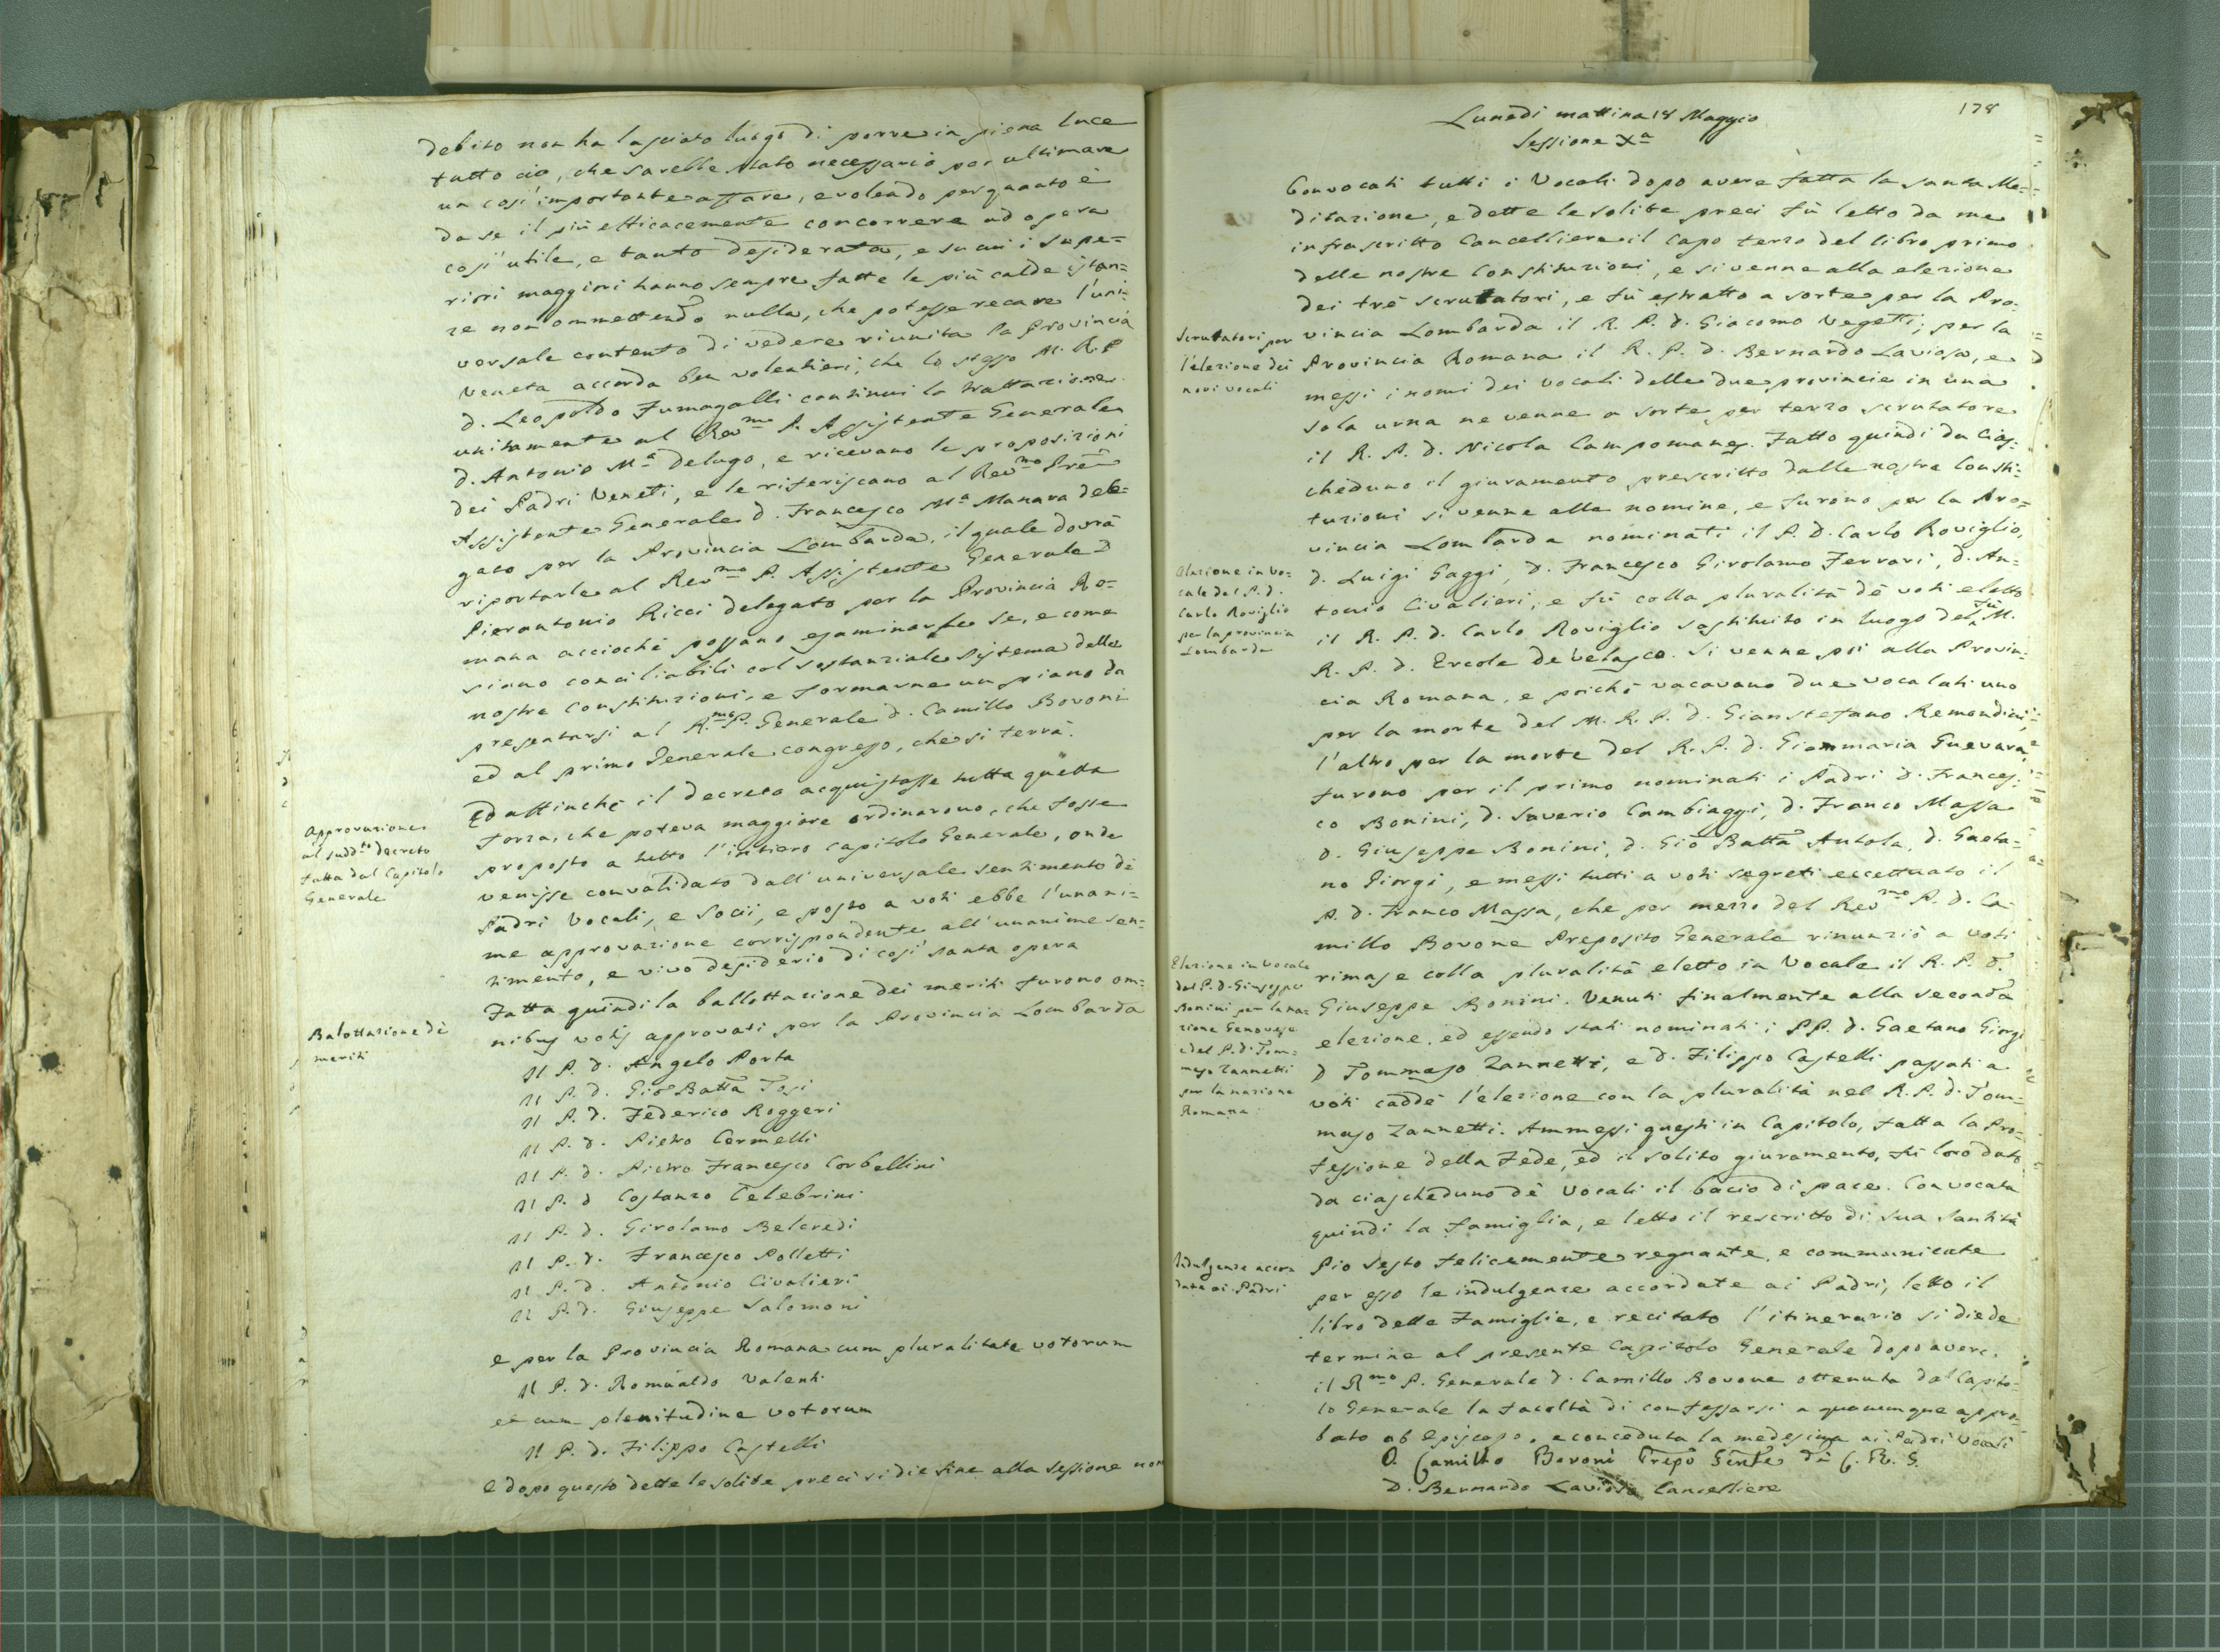 debito non ha lasciato luogo di porre in piena luce
tutto ciò, che sarebbe stato necessario per ultimare
un così importante affare, e volendo per quanto è
da se il più efficacemente concorrere ad opera
così utile, e tanto desiderata, e su cui i Supe=
riori maggiori hanno sempre fatte le più calde istan=
ze non ommettendo nulla, che potesse recare l'uni=
versale contento di vedere riunita la Provincia
Veneta accorda ben volentieri, che lo stesso M. R. P
D. Leopoldo Fumagalli continui la trattazione
unitamente al Revmo P. Assistente Generale
D. Antonio Ma Delugo, e ricevano le proposizioni
dei Padri Veneti, e le riferiscano al Revmo Pre
Assistente Generale D. Francesco Ma Manara dele=
gato per la Provincia Lombarda, il quale dovrà
riportarle al Revmo P. Assistente Generale D
Pierantonio Ricci delegato per la Provincia Ro=
mana acciochè possano esaminare se, e come
siano conciliabili col sostanziale sistema delle
nostre Constituzioni, e formarne un piano da
presentarsi al R.mo P. Generale D. Camillo Bovoni
ed al primo Generale congresso, che si terrà.
Approvazione
al suddto decreto
fatta dal Capitolo
Generale
Ed affinchè il decreto acquistasse tutta quella
forza, che poteva maggiore ordinarono, che fosse
proposto a tutto l'intiero Capitolo Generale, onde
venisse convalidato dall'universale sentimento dè
Padri Vocali, e Socii, e posto a voti ebbe l'unani=
me approvazione corrispondente all'unanime sen=
timento, e vivo desiderio di così santa opera
Balottazione dè
meriti
Fatta quindi la ballottazione dei meriti furono om=
nibus votis approvati per la Provincia Lombarda
Il P. D. Angelo Porta
Il P. D. Gio Batta Tosi
Il P. D. Federico Roggeri
Il P. D. Pietro Cermelli
Il P. D. Pietro Francesco Corbellini
Il P. D Costanzo Celebrini
Il P. D. Girolamo Belcredi
Il P. D. Francesco Polletti
Il P. D. Antonio Civalieri
Il P. D. Giuseppe Salomoni
e per la Provincia Romana cum pluralitate votorum
Il P. D. Romualdo Valenti
et cum plenitudine votorum
Il P. D. Filippo Castelli
E dopo questo dette le solite preci si diè fine alla sessione non
178
Lunedì mattina 18 Maggio
Sessione Xa
Convocati tutti i Vocali dopo avere fatta la santa Me=
ditazione, e dette le solite preci fù letto da me
infrascritto Cancelliere il capo terzo del libro primo
delle nostre Constituzioni, e si venne alla elezione
dei trè scrutatori, e fù estratto a sorte per la Pro=
Scrutatori per
l'elezione dei
novi vocali
vincia Lombarda il R. P. D. Giacomo Vegetti; per la
Provincia Romana il R. P. D. Bernardo Laviosa, e
messi i nomi dei vocali delle due provincie in una
sola urna ne venne a sorte per terzo scrutatore
il R. P. D. Nicola Campomanes. Fatto quindi da cias=
cheduno il giuramento prescritto dalle nostre Consti=
tuzioni si venne alle nomine, e furono per la Pro=
vincia Lombarda nominati il P. D. Carlo Roviglio,
Elezione in Vo=
cale del P. D.
Carlo Roviglio
per la provincia
Lombarda
D. Luigi Gaggi, D. Francesco Girolamo Ferrari, D. An=
tonio Civalieri, e fù colla pluralità dè voti eletto
il R. P. D. Carlo Roviglio sostituito in luogo del fù M.
R. P. D. Ercole De Velasco. Si venne poi alla Provin=
cia Romana, e poichè vacavano due vocalati uno
per la morte del M. R. P. D. Gianstefano Remondini,
l'altro per la morte del R. P. D. Giammaria Guevara,
furono per il primo nominati i Padri D. Frances=
co Bonini, D. Saverio Cambiaggi, D. Franco Massa
D. Giuseppe Bonini, D. Gio Batta Autola, D. Gaeta=
no Giorgi, e messi tutti a voti segreti eccettuato il
P. D. Franco Massa, che per mezzo del Revmo P. D. Ca=
millo Bovone Preposito Generale rinunziò a voti
Elezione in Vocale
del P. D. Giuseppe
Bonini per la na=
zione Genovese
e del P. D. Tom=
maso Zannetti
per la nazione
Romana
rimase colla pluralità eletto in Vocale il R. P. D.
Giuseppe Bonini. Venuti finalmente alla seconda
elezione, ed essendo stati nominati i PP. D. Gaetano Giorgi
D Tommaso Zannetti, e D. Filippo Castelli passati a
voti caddè l'elezione con la pluralità nel R. P. D. Tom=
maso Zannetti. Ammessi questi in Capitolo, fatta la Pro=
fessione della Fede, ed il solito giuramento, fù loro dato
da ciascheduno dè Vocali il bacio di pace. Convocata
quindi la famiglia, e letto il rescritto di sua Santità
Indulgenze accor
date ai Padri
Pio Sesto felicemente regnante, e communicate
per esso le indulgenze accordate ai Padri, letto il
libro delle Famiglie, e recitato l'itinerario si diede
termine al presente Capitolo Generale dopo avere
il Rmo P. Generale D. Camillo Bovone ottenuta dal Capito=
lo Generale la facoltà di confessarsi a quaunque appro=
bato ab Episcopo, e conceduta la medesima ai Padri Vocali
D. Camillo Bovoni Prepo Genle dè C. R. S.
D. Bernardo Laviosa Cancelliere